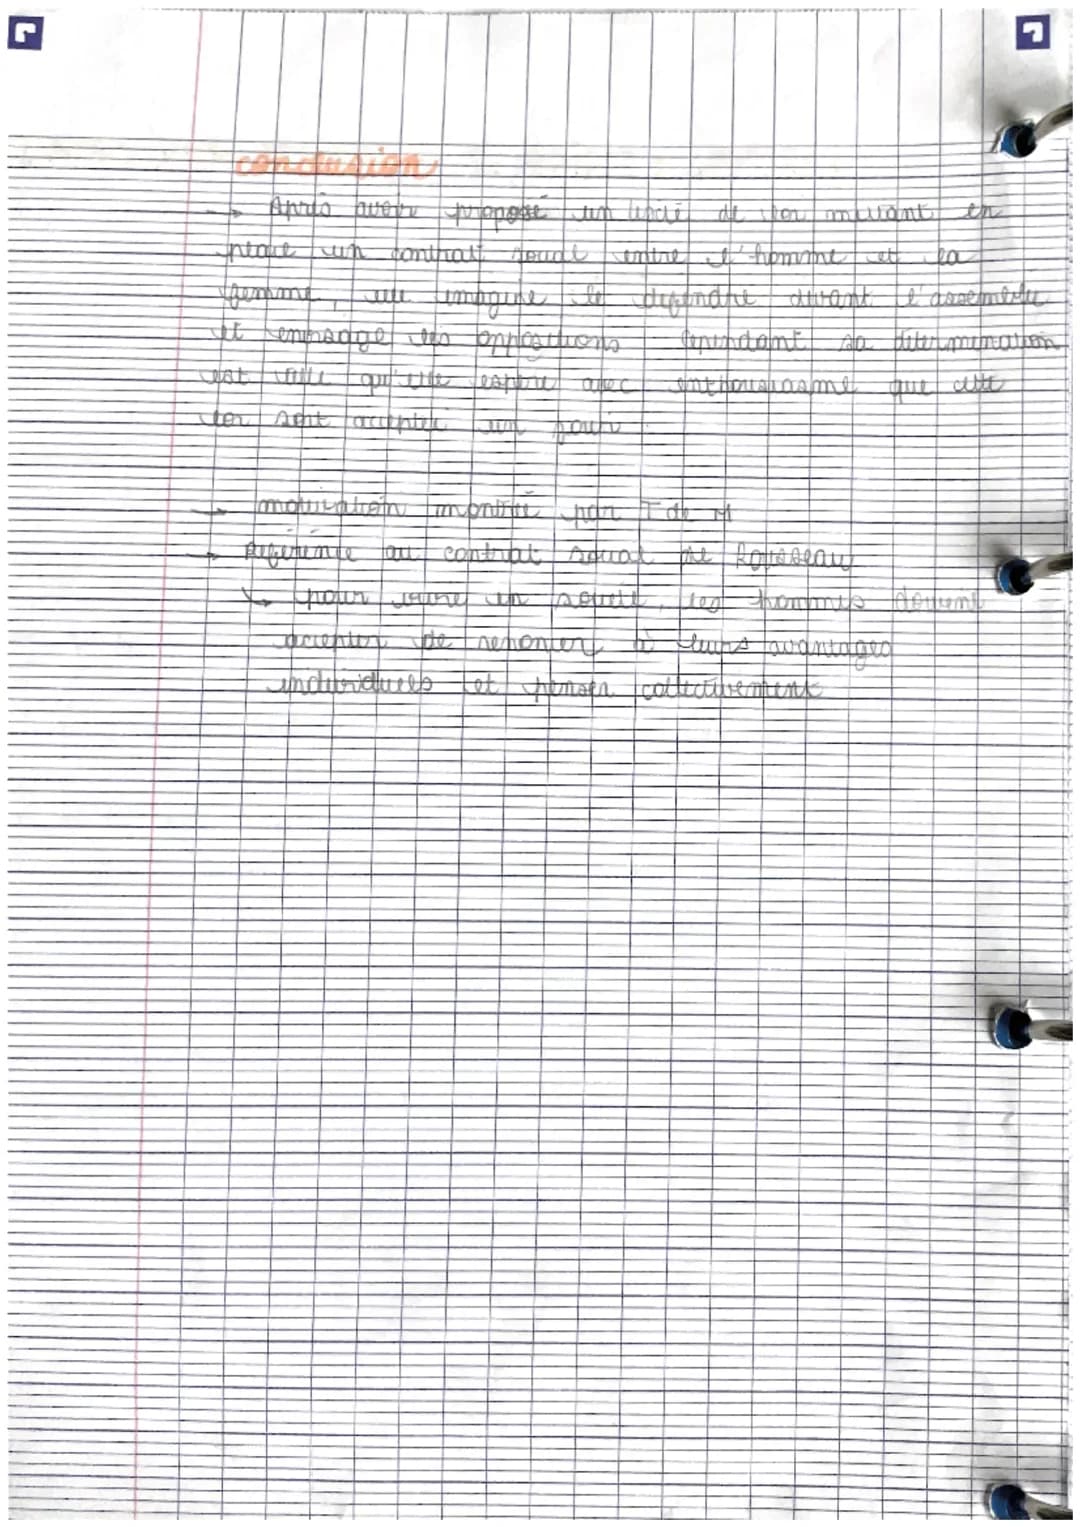 conclusion
→ Après avoir proposé un texte de loi mettant en
place un contrat social entre l'homme et la
femme, elle imagine le défendre devant l'assemblée
et envisage les oppositions. Cependant sa détermination
est telle qu'elle espère avec enthousiasme que cette
loi soit acceptée un jour.
→ motivation montrée par T de M
→ Référence au contrat social de Rousseau
↳ pour vivre en société, les hommes doivent
accepter de renoncer à leurs avantages
individuels et penser collectivement